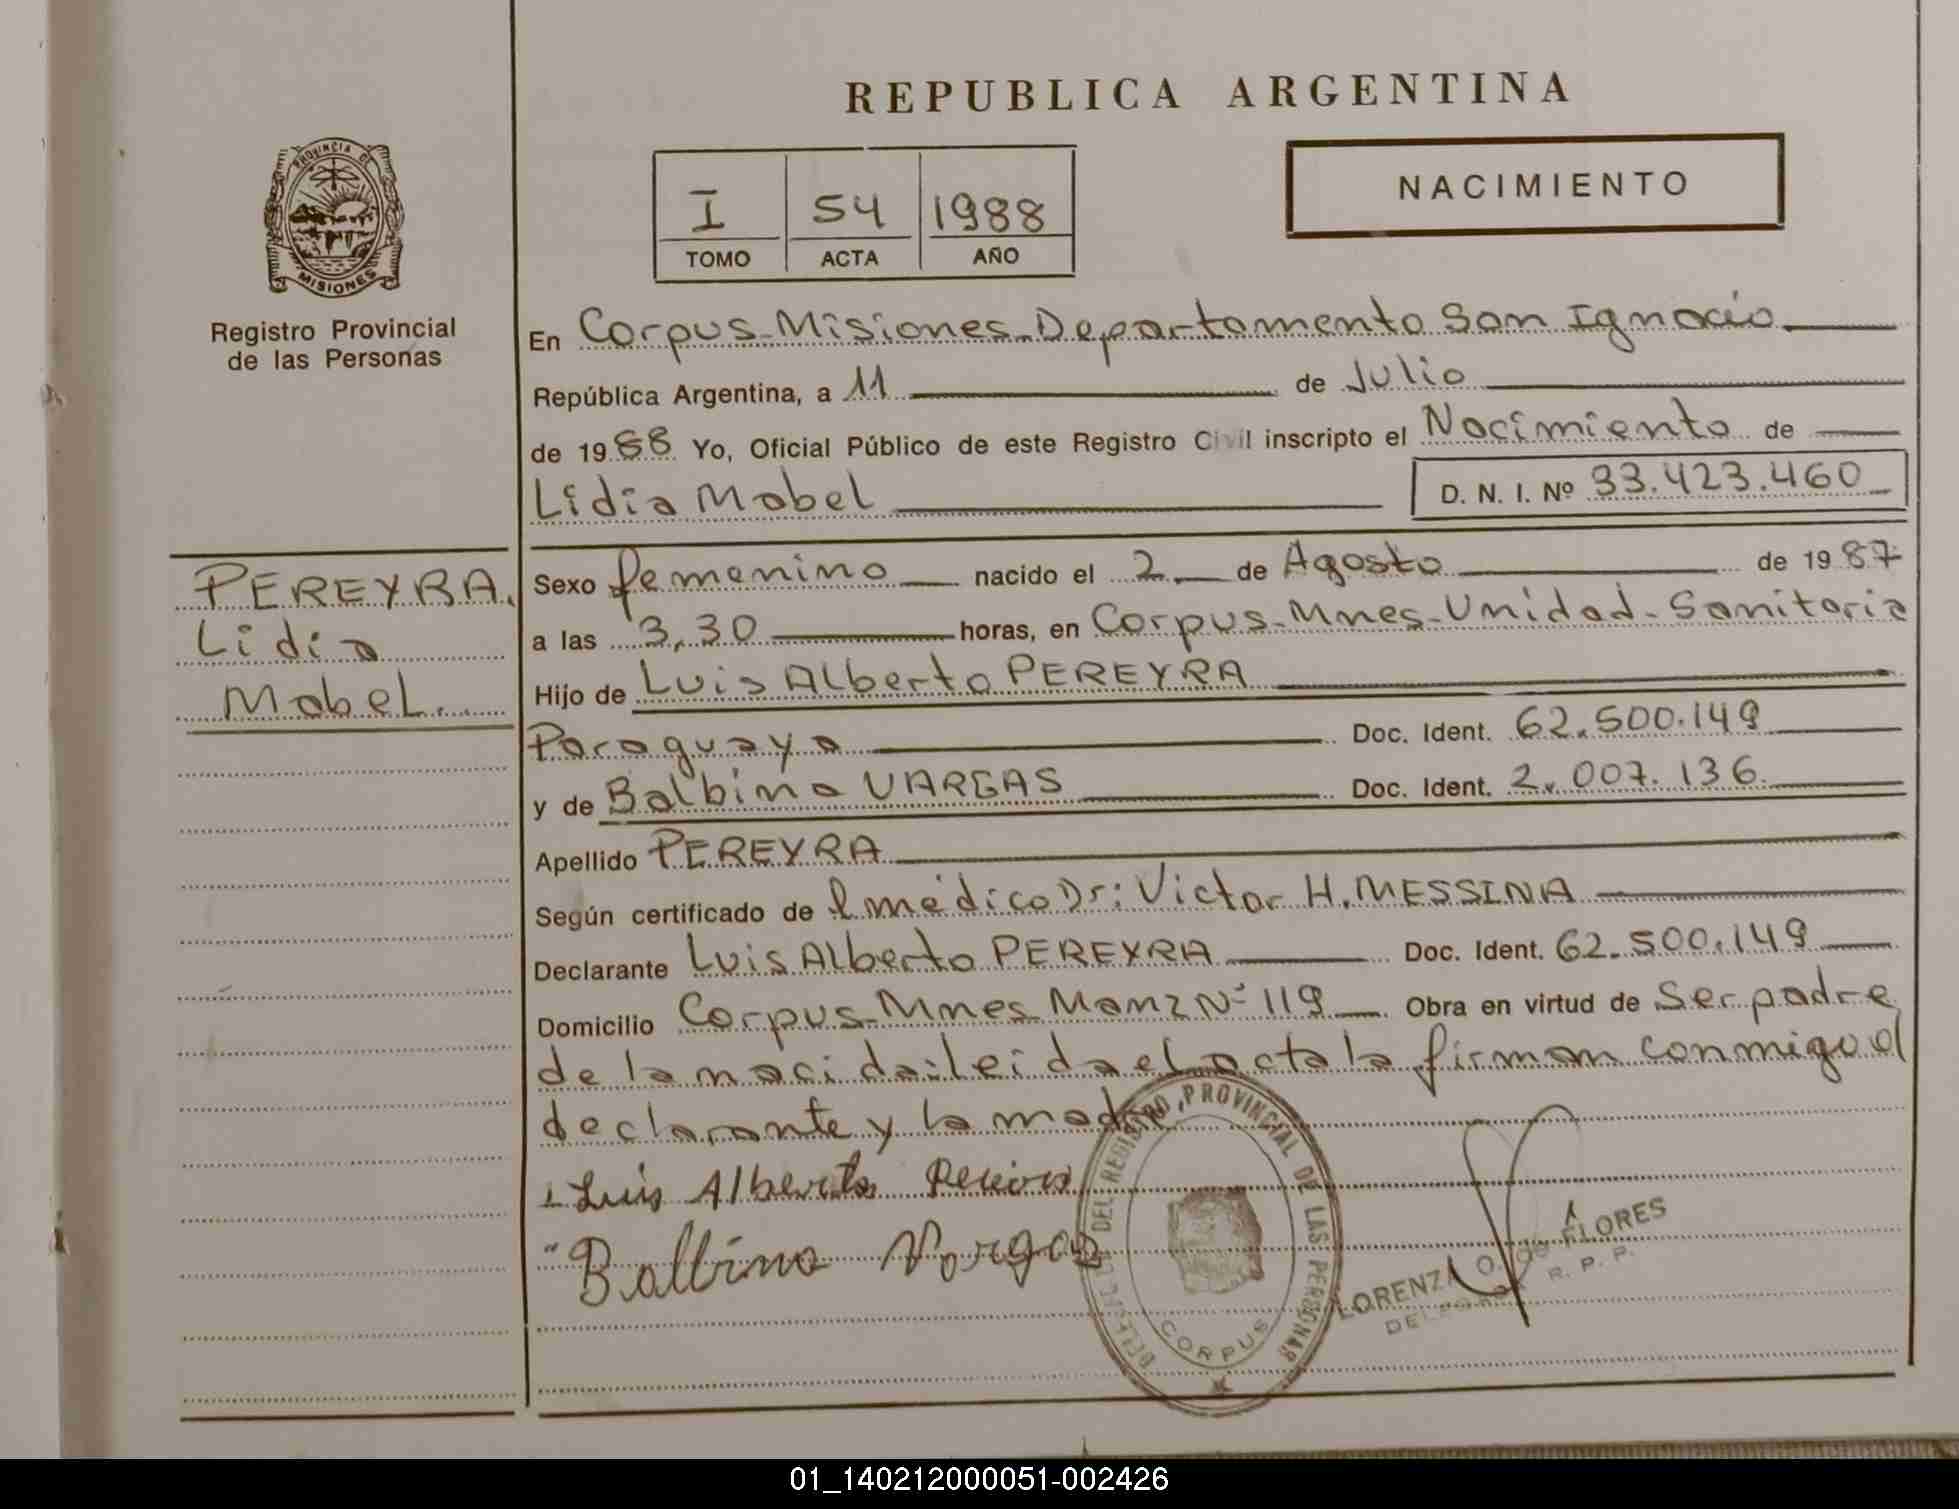 REPUBLICA ARGENTINA
PROVINCIA DE
MISIONES
Registro Provincial
de las Personas
I 54 1988
TOMO ACTA AÑO
NACIMIENTO
En Corpus-Misiones-Departamento San Ignacio
República Argentina, a 11 de Julio
de 1988 Yo, Oficial Público de este Registro Civil inscripto el Nacimiento de
Lidia Mabel D. N. I. Nº 33.423.460
PEREYRA.
Lidia
Mabel..
Sexo femenino nacido el 2 de Agosto de 1987
a las 3,30 horas, en Corpus-Mnes-Unidad-Sanitaria
Hijo de Luis Alberto PEREYRA
Paraguaya Doc. Ident. 62.500.149
y de Balbina VARGAS Doc. Ident. 2.007.136
Apellido PEREYRA
Según certificado de l médico Dr: Victor H. MESSINA
Declarante Luis Alberto PEREYRA Doc. Ident. 62.500.149
Domicilio Corpus-Mnes Manz Nº 119 Obra en virtud de Ser padre
de la nacida: leida el acta la firman conmigo el
declarante y la madre
Luis Alberto
Balbina Vargas
DEL REGISTRO PROVINCIAL DE LAS PERSONAS
CORPUS
LORENZA O. de FLORES
R. P. P.
01_140212000051-002426